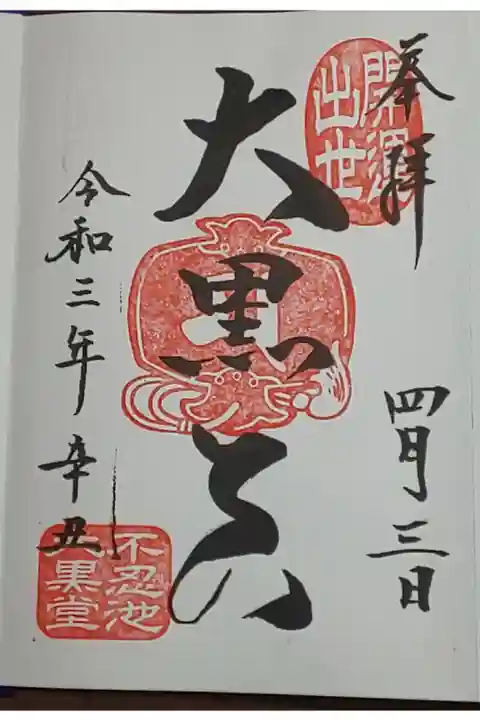 奉拝
四月三日
開運
出世
大黒天
令和三年 辛丑
不忍池
大黒堂